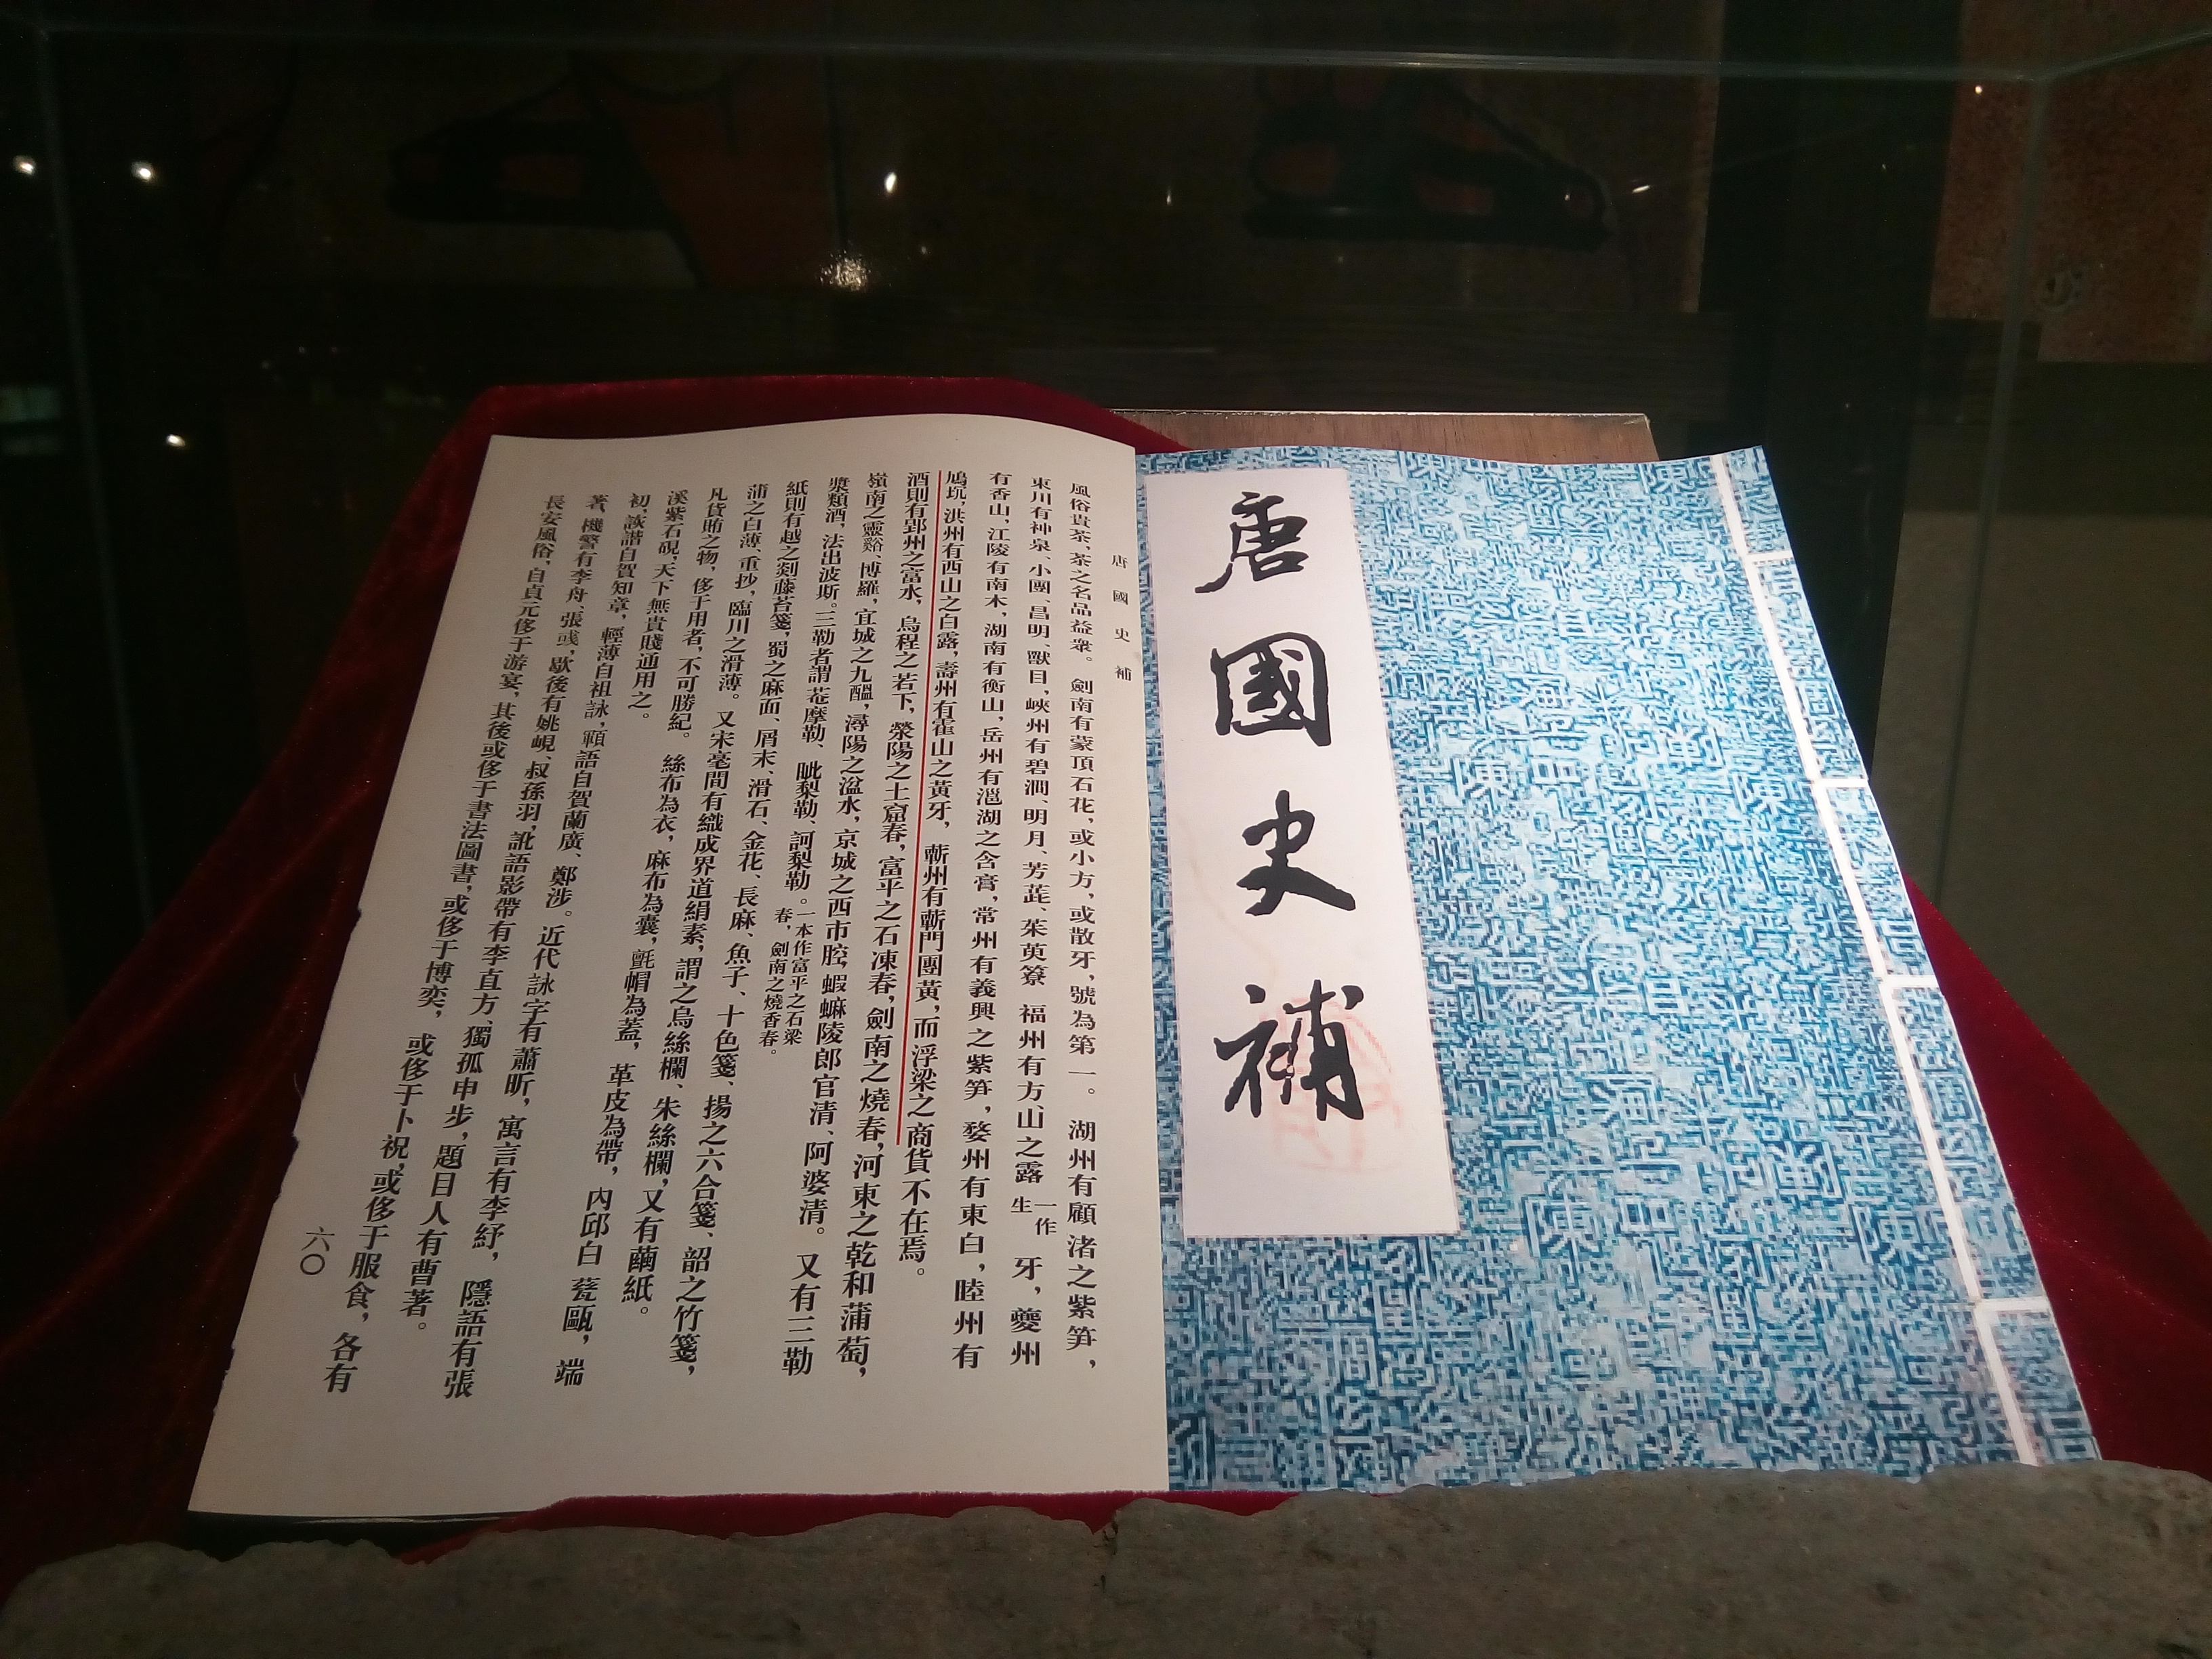 唐國史補
唐國史補
風俗貴茶，茶之名品益衆。劍南有蒙頂石花，或小方，或散牙，號為第一。湖州有顧渚之紫笋，
東川有神泉、小團、昌明、獸目，峽州有碧澗、明月、芳蕋、茱萸簝，福州有方山之露一作生牙，夔州
有香山，江陵有南木，湖南有衡山，岳州有㴩湖之含膏，常州有義興之紫笋，婺州有東白，睦州有
鳩坑，洪州有西山之白露，壽州有霍山之黃牙，蘄州有蘄門團黃，而浮梁之商貨不在焉。
酒則有郢州之富水，烏程之若下，滎陽之土窟春，富平之石凍春，劍南之燒春，河東之乾和蒲萄，
嶺南之靈谿、博羅，宜城之九醞，潯陽之湓水，京城之西市腔，蝦蟇陵郎官清、阿婆清。又有三勒
漿類酒，法出波斯。三勒者謂菴摩勒、毗梨勒、訶梨勒。一本作富平之石梁春，劍南之燒香春。
紙則有越之剡藤苔箋，蜀之麻面、屑末、滑石、金花、長麻、魚子、十色箋，揚之六合箋，韶之竹箋，
蒲之白薄、重抄，臨川之滑薄。又宋亳間有織成界道絹素，謂之烏絲欄、朱絲欄，又有繭紙。
凡貨賄之物，侈于用者，不可勝紀。絲布為衣，麻布為囊，氈帽為蓋，革皮為帶，內邱白甆甌，端
溪紫石硯，天下無貴賤通用之。
初，詼諧自賀知章，輕薄自祖詠，顊語自賀蘭廣、鄭涉。近代詠字有蕭昕，寓言有李紓，隱語有張
著，機警有李舟、張彧，歇後有姚峴、叔孫羽，訛語影帶有李直方、獨孤申步，題目人有曹著。
長安風俗，自貞元侈于游宴，其後或侈于書法圖書，或侈于博奕，或侈于卜祝，或侈于服食，各有
六〇